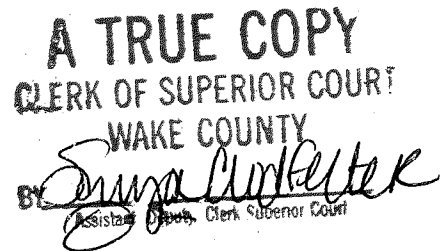 A TRUE COPY
CLERK OF SUPERIOR COURT
WAKE COUNTY
BY Sonya Clodfelter
Assistant Deputy, Clerk Superior Court